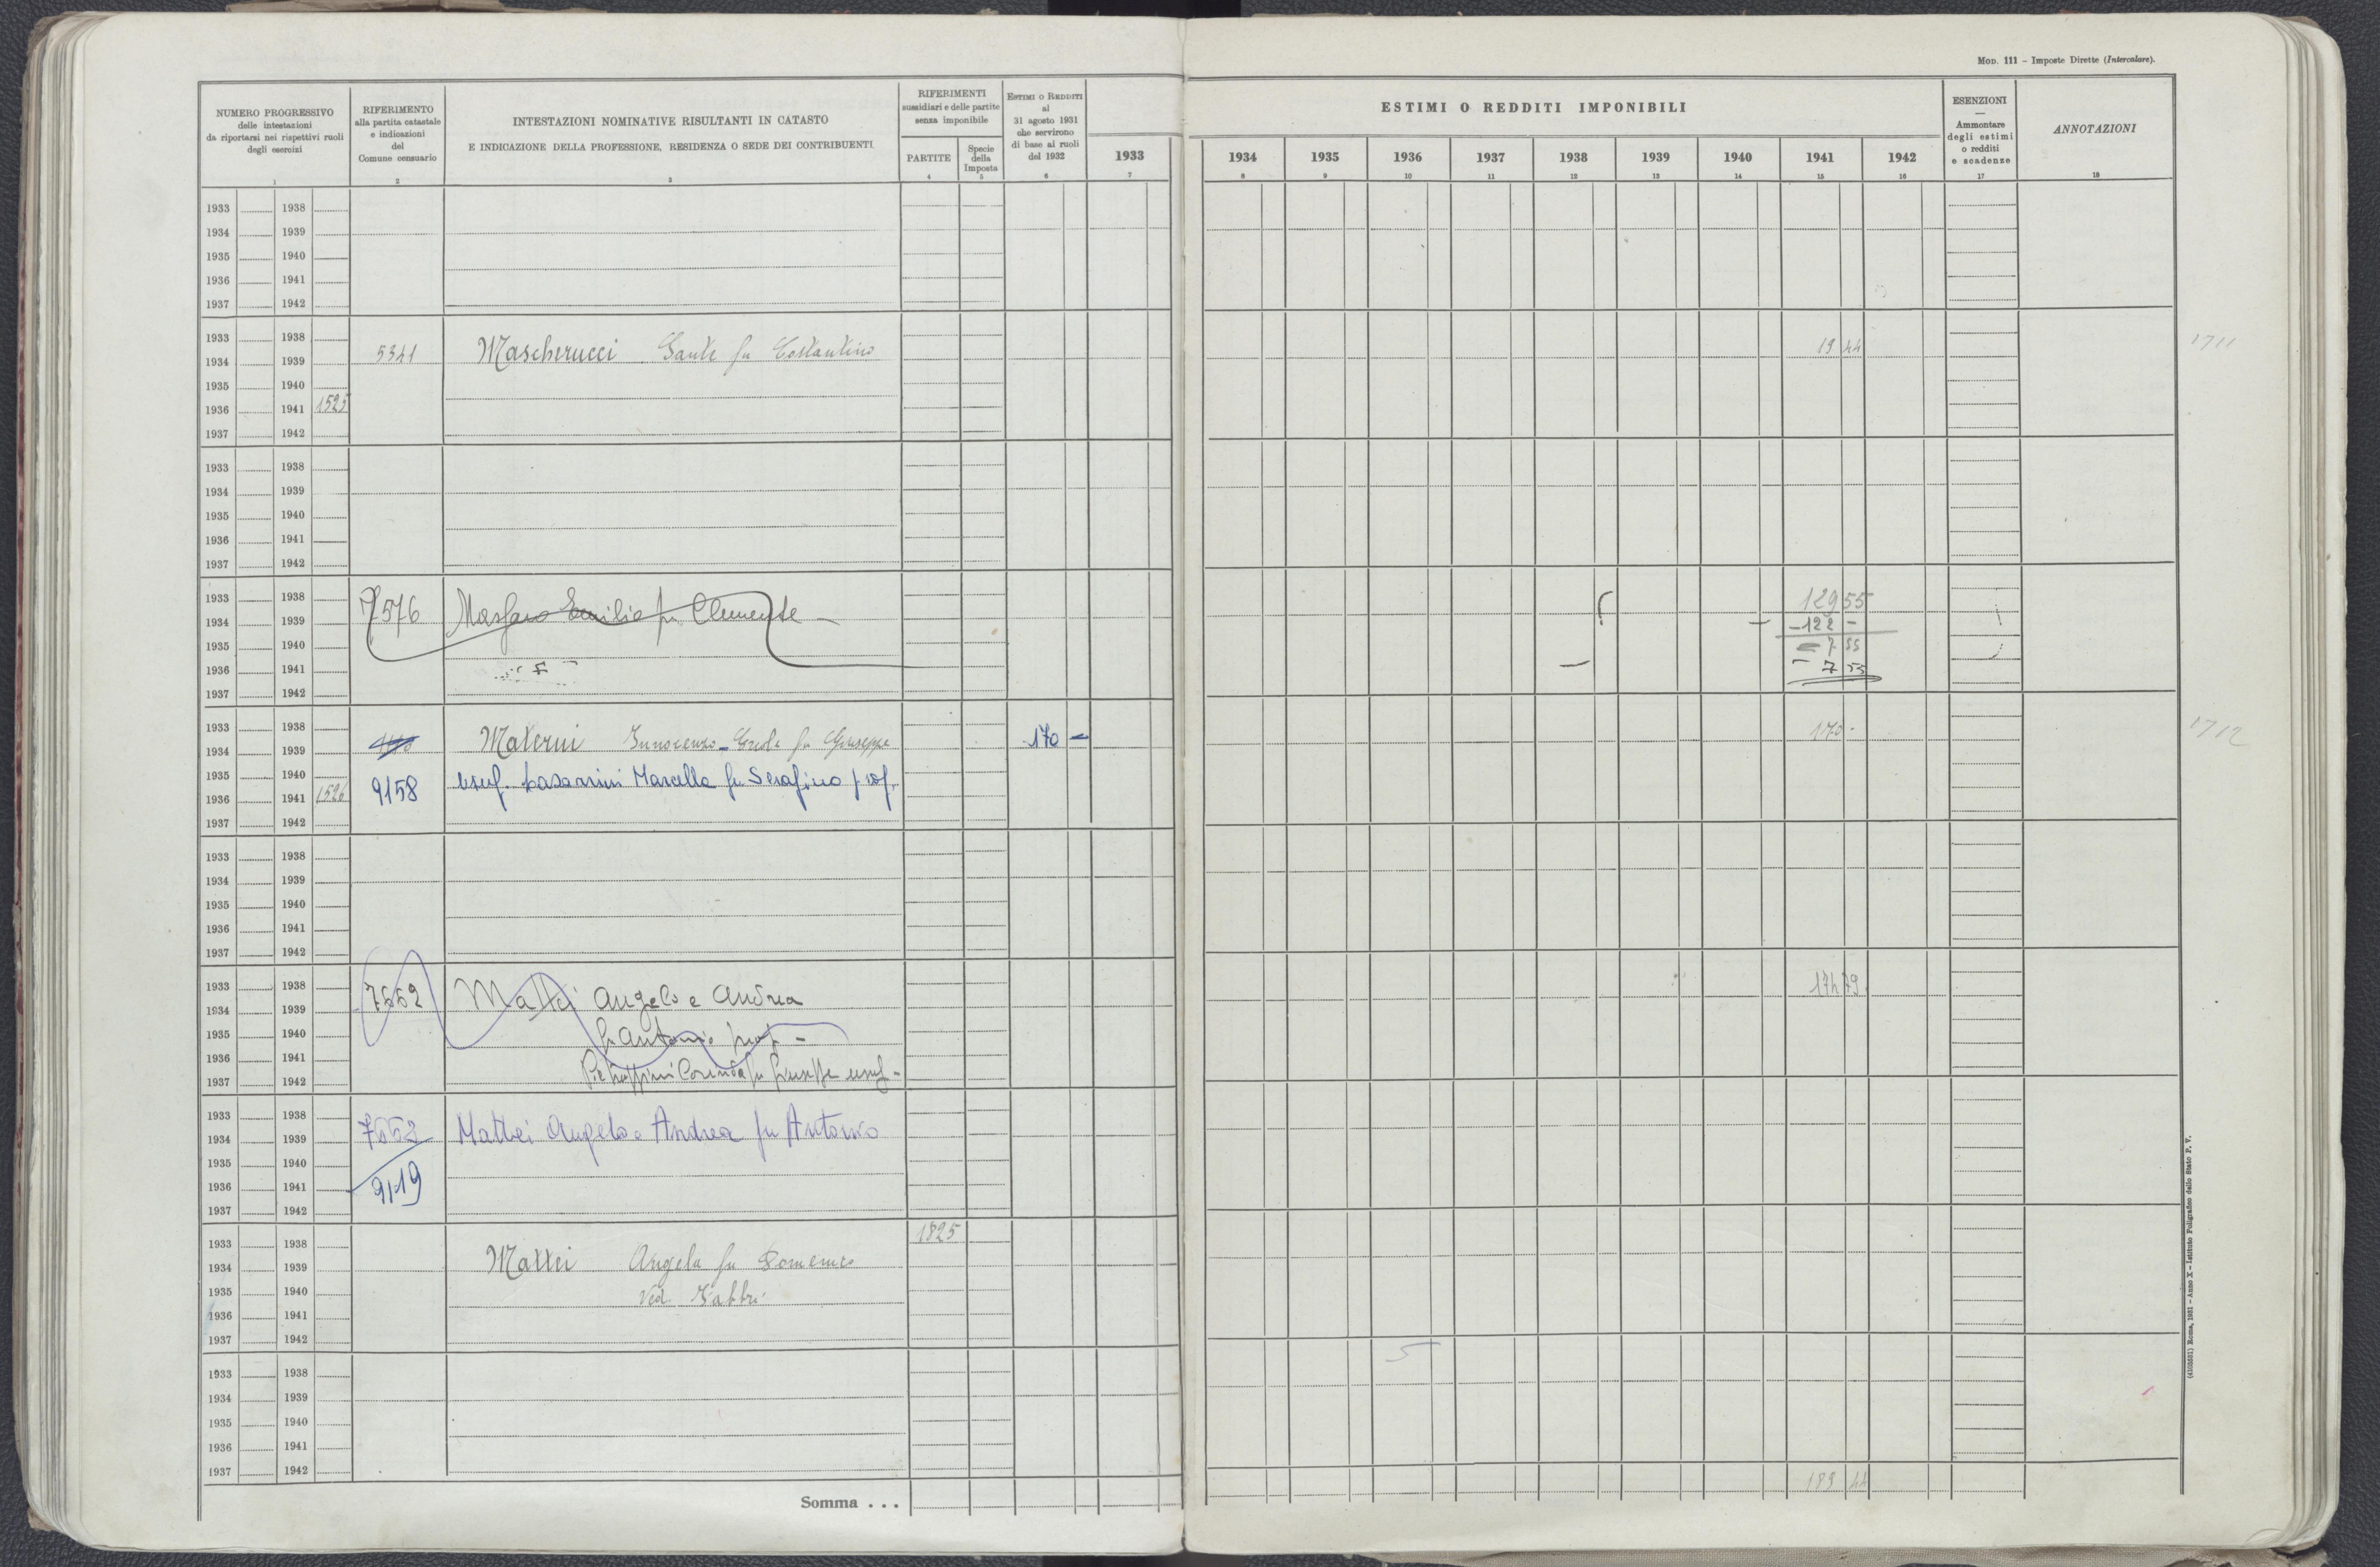 MOD. 111 – Imposte Dirette (Intercalare).
NUMERO PROGRESSIVO
delle intestazioni
da riportarsi nei rispettivi ruoli
degli esercizi
1
RIFERIMENTO
alla partita catastale
e indicazioni
del
Comune censuario
2
INTESTAZIONI NOMINATIVE RISULTANTI IN CATASTO
E INDICAZIONE DELLA PROFESSIONE, RESIDENZA O SEDE DEI CONTRIBUENTI
3
RIFERIMENTI
sussidiari e delle partite
senza imponibile
PARTITE
4
Specie
della
Imposta
5
ESTIMI O REDDITI
al
31 agosto 1931
che servirono
di base ai ruoli
del 1932
6
1933
7
ESTIMI O REDDITI IMPONIBILI
1934 1935 1936 1937 1938 1939 1940 1941 1942
8 9 10 11 12 13 14 15 16
ESENZIONI
—
Ammontare
degli estimi
o redditi
e scadenze
17
ANNOTAZIONI
18
1933 1938
1934 1939
1935 1940
1936 1941
1937 1942
1933 1938
1934 1939 5341 Mascherucci Sante fu Costantino 19 44 1711
1935 1940
1936 1941 1525
1937 1942
1933 1938
1934 1939
1935 1940
1936 1941
1937 1942
1933 1938 129 55
1934 1939 7576 Emilio fu Clemente – – 122 –
1935 1940 – 7 55
1936 1941 – 7 55
1937 1942
1933 1938
1934 1939 Materni Innocenzo fu Giuseppe 170 – 170 - 1712
1935 1940 usuf. Marcella fu Serafino
1936 1941 1526 9158
1937 1942
1933 1938
1934 1939
1935 1940
1936 1941
1937 1942
1933 1938 174 79
1934 1939 7662 Mattei Angelo e Andrea
1935 1940 fu Antonio –
1936 1941
1937 1942 fu Giuseppe usuf -
1933 1938
1934 1939 Mattei Angelo e Andrea fu Antonio
1935 1940
1936 1941 9119
1937 1942
1933 1938 1825
1934 1939 Mattei Angela fu Domenico
1935 1940 Ved. Fabbri
1936 1941
1937 1942
1933 1938 5
1934 1939
1935 1940
1936 1941
1937 1942 189 44
Somma . . .
(4103531) Roma, 1931 – Anno X – Istituto Poligrafico dello Stato P. V.